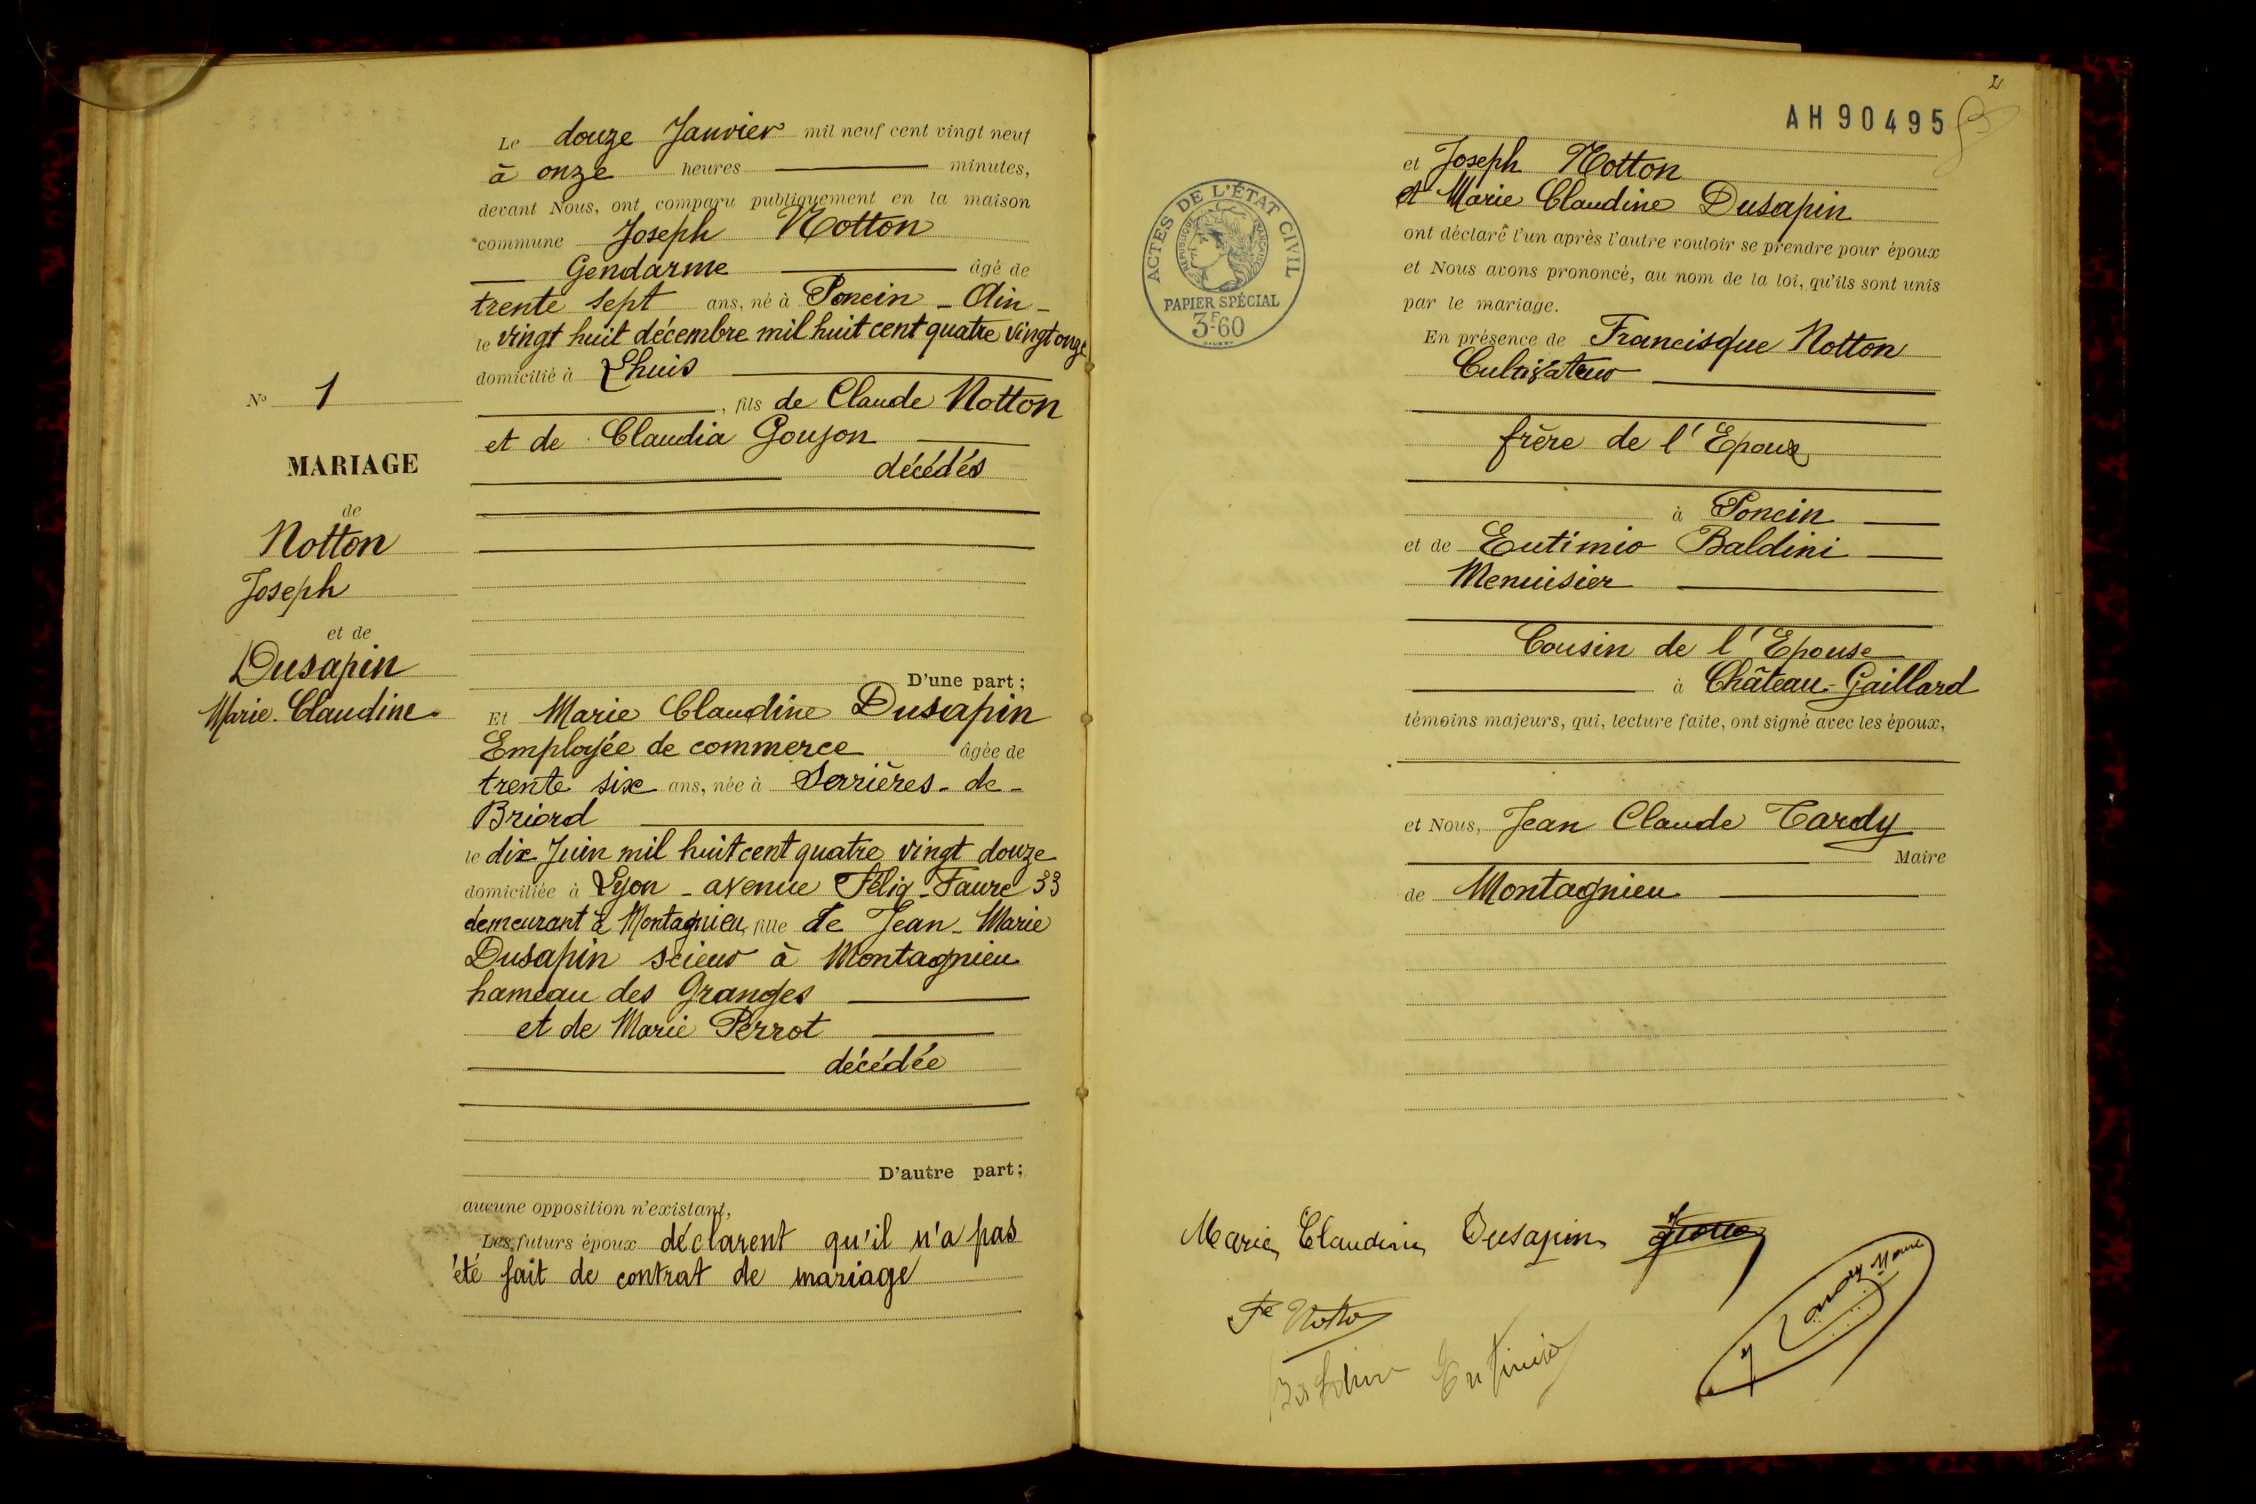 Le douze Janvier mil neuf cent vingt neuf
à onze heures minutes,
devant Nous, ont comparu publiquement en la maison
commune Joseph Notton
Gendarme âgé de
trente sept ans, né à Poncin - Ain -
le vingt huit décembre mil huit cent quatre vingt onze
domicilié à Lhuis
, fils de Claude Notton
et de Claudia Goujon
décédés
D'une part;
N° 1
MARIAGE
de
Notton
Joseph
et de
Dusapin
Marie-Claudine
Et Marie Claudine Dusapin
Employée de commerce âgée de
trente six ans, née à Serrières-de-
Briord
le dix Juin mil huit cent quatre vingt douze
domiciliée à Lyon - avenue Félix-Faure 33
demeurant à Montagnieu, fille de Jean-Marie
Dusapin scieur à Montagnieu
hameau des Granges
et de Marie Perrot
décédée
D'autre part;
aucune opposition n'existant,
Les futurs époux déclarent qu'il n'a pas
été fait de contrat de mariage
2
AH90495
ACTES DE L'ÉTAT CIVIL
RÉPUBLIQUE FRANÇAISE
PAPIER SPÉCIAL
3F60
et Joseph Notton
et Marie Claudine Dusapin
ont déclaré l'un après l'autre vouloir se prendre pour époux
et Nous avons prononcé, au nom de la loi, qu'ils sont unis
par le mariage.
En présence de Francisque Notton
Cultivateur
frère de l'Epoux
à Poncin
et de Eutimio Baldini
Menuisier
Cousin de l'Epouse
à Château-Gaillard
témoins majeurs, qui, lecture faite, ont signé avec les époux,
et Nous, Jean Claude Tardy
Maire
de Montagnieu
Marie Claudine Dusapin
Fe Notton
Baldini Eutimio
J Tardy Maire